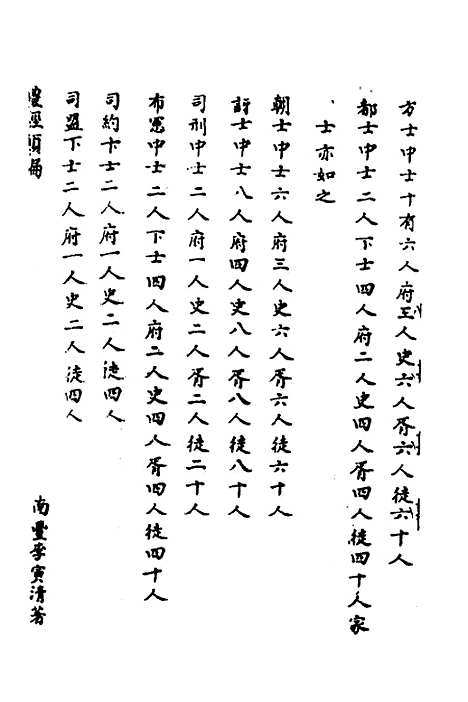 方士中士十有六人府三人史六人胥六人徒六十人
都士中士二人下士四人府二人史四人胥四人徒四十人家
士亦如之
朝士中士六人府三人史六人胥六人徒六十人
訝士中士八人府四人史八人胥八人徒八十人
司刑中士二人府一人史二人胥二人徒二十人
布憲中士二人下士四人府二人史四人胥四人徒四十人
司約下士二人府一人史二人徒四人
司盟下士二人府一人史二人徒四人
南豐李寅清著